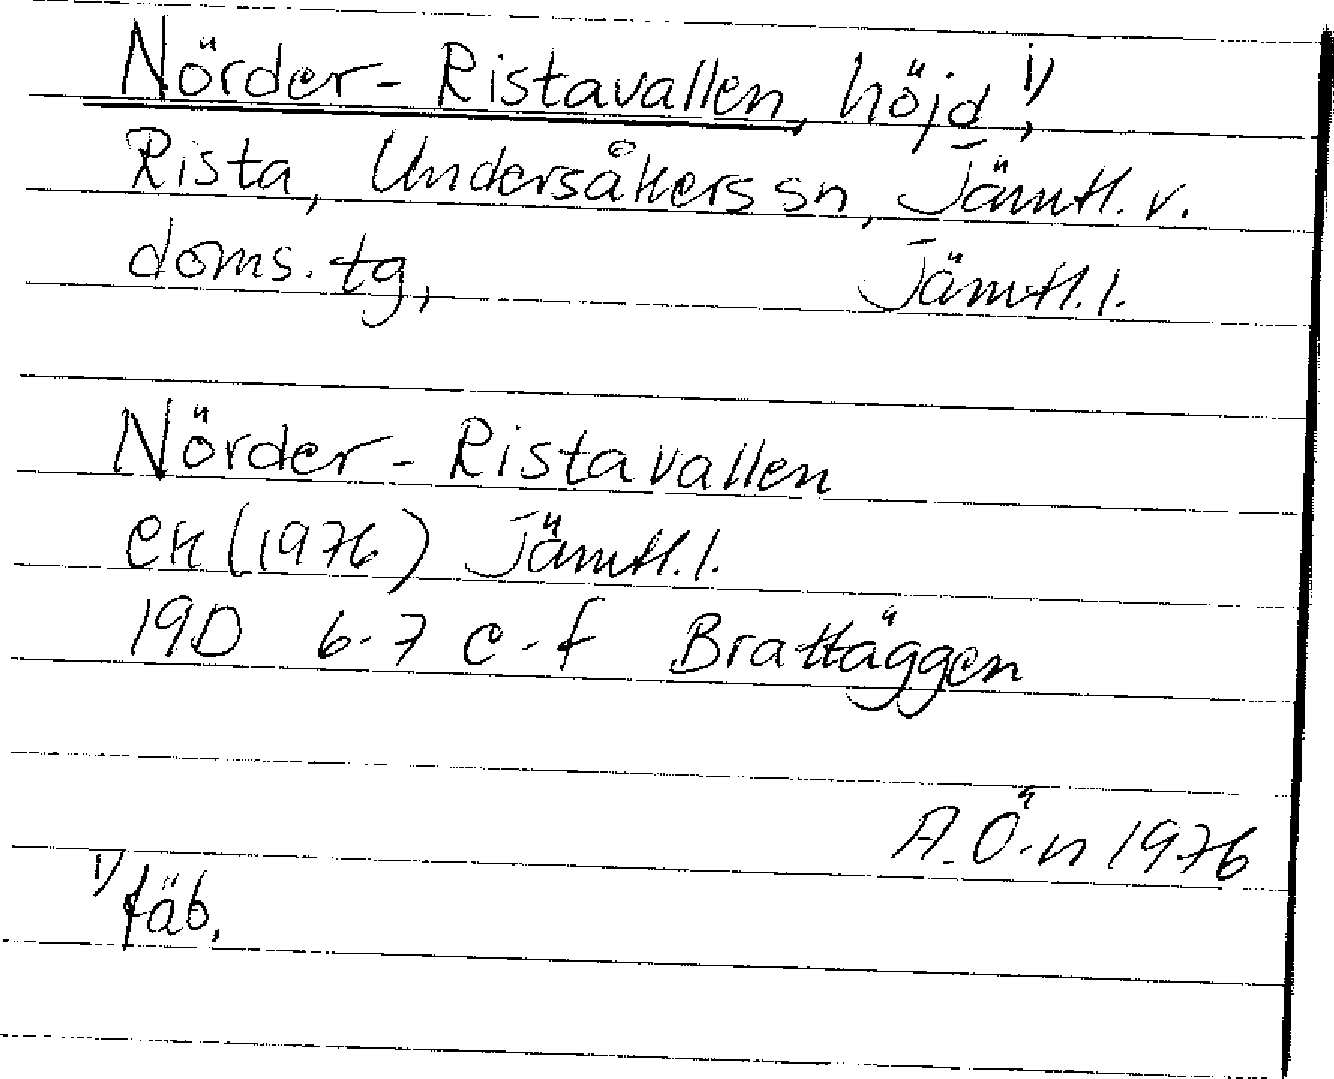 Nörder-Ristavallen, höjd,¹⁾
Rista, Undersåkers sn, Jämtl. v.
doms. tg, Jämtl. l.
Nörder-Ristavallen
ek (1976) Jämtl. l.
19D 6-7 c-f Brattäggen
A. Ö-n 1976
¹⁾ fäb.